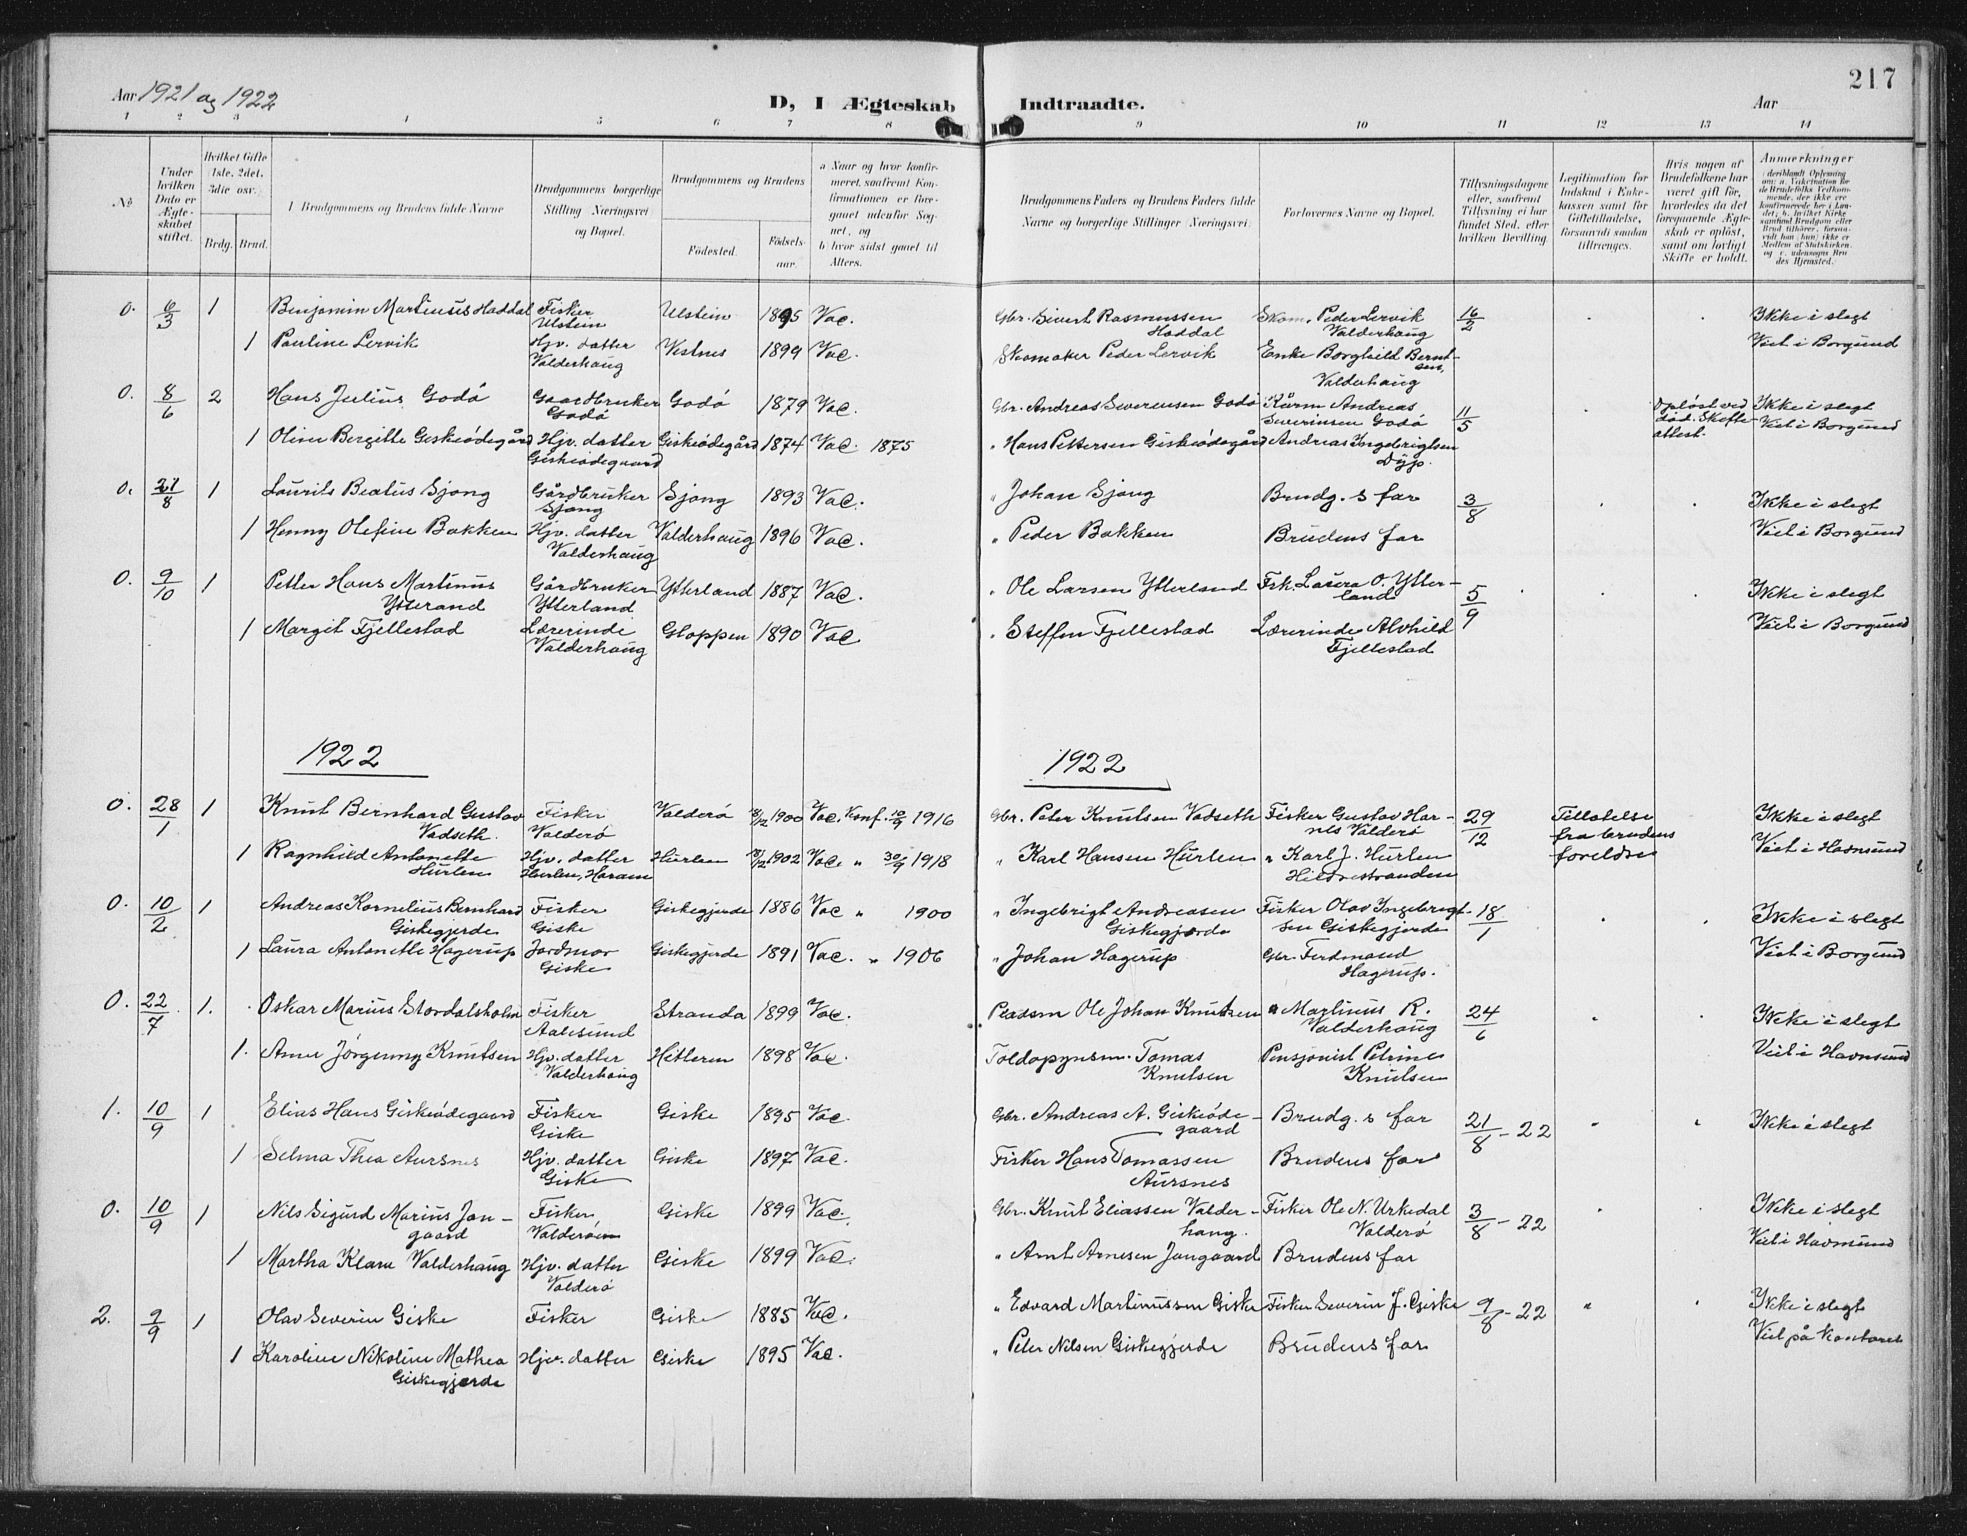 Aar 1921 og 1922
D, I Ægteskab Indtraadte.
217
Aar
1 2 3 4 5 6 7 8 9 10 11 12 13 14
№
Under hvilken Dato er Ægteskabet stiftet.
Hvilket Gifte 1ste, 2det, 3die osv.
Brdg. Brud.
Brudgommens og Brudens fulde Navne
Brudgommens borgerlige Stilling Næringsvei og Bopæl.
Brudgommens og Brudens
Fødested.
Fødselsaar.
a Naar og hvor konfirmeret, saafremt Konfirmationen er foregaaet udenfor Sognet, og
b) hvor sidst gaaet til Alters.
Brudgommens Faders og Brudens Faders fulde Navne og borgerlige Stillinger (Næringsvei.
Forlovernes Navne og Bopæl.
Tillysningsdagene eller, saafremt Tillysning ei har fundet Sted, efter hvilken Bevilling.
Legitimation for Indskud i Enkekassen samt for Giftetilladelse, forsaavidt saadan tiltrænges.
Hvis nogen af Brudefolkene har været gift før, hvorledes da det foregaaende Ægteskab er opløst, samt om lovligt Skifte er holdt.
Anmærkninger
0. 6/3 1 Benjamin Martinus Haddal Fisker Ulstein Ulstein 1895 Vac. Gbr. Sivert Rasmussen Haddal Skom. Peder Lervik Valderhaug 16/2 Ikke i slegt
1 Pauline Lervik Hjv. datter Valderhaug Vestnes 1899 Vac. Skomaker Peder Lervik Enke Borghild Berntsen, Valderhaug Viet i Borgund
0. 8/6 2 Hans Julius Godö Gaardbruker Godö Godö 1879 Vac. Gbr. Andreas Severinsen Godö Kårm. Andreas Severinsen Godö 11/5 Opløst ved død. Skifteattest. Ikke i slegt
1 Oline Bergitte Geskeödegård Hjv. datter Giskeödegaard Giskeödegård 1874 Vac 1875 " Hans Pettersen Giskeödegård Andreas Ingebrigtsen Dyp. Viet i Borgund
0. 21/8 1 Laurits Beatus Sjong Gårdbruker Sjong Sjong 1893 Vac. " Johan Sjong Brudg. s far 3/8 Ikke i slegt
1 Henny Olefine Bakken Hjv. datter Valderhaug Valderhaug 1896 Vac. " Peder Bakken Brudens far Viet i Borgund
0. 9/10 1 Petter Hans Martinus Ytterand Gårdbruker Ytterland Ytterland 1887 Vac. " Ole Larsen Ytterland Frk. Laura O. Ytterland 5/9 Ikke i slegt
1 Margit Fjellestad Lærerinde Valderhaug Gloppen 1890 Vac " Steffen Fjellestad Lærerinde Alvhild Fjellestad Viet i Borgund
1922 1922
0. 28/1 1 Knut Bernhard Gustav Vadseth. Fisker Valderö Valderö 8/12 1900 Vac. Konf. 10/9 1916 Gbr. Peter Knutsen Vadseth Fisker Gustav Harnes Valderö 29/12 Tillatelse fra brudens foreldre Ikke i slegt
1 Ragnhild Antonette Hurlen Hjv. datter Hurlen, Haram Hurlen 1902 Vac. " 30/9 1918 " Karl Hansen Hurlen " Karl J. Hurlen Hildrestranden Viet i Havnsund
0. 10/2 1 Andreas Kornelius Bernhard Giskegjerde Fisker Giske Giskegjerde 1886 Vac " 1900 " Ingebrigt Andreasen Giskegjerde Fisker Olav Ingebrigtsen Giskegjerde 18/1 Ikke i slegt
1 Laura Antonette Hagerup Jordmor Giske Giskegjerde 1891 Vac. " 1906 " Johan Hagerup Gbr. Ferdinand Hagerup. Viet i Borgund
0. 22/7 1. Oskar Marius Stordalsholm Fisker Aalesund Stranda 1899 Vac. Pladsm Ole Johan Knutsen " Martinus R. Valderhaug 24/6 Ikke i slegt
1. Anne Jörgenny Knutsen Hjv. datter Valderhaug Hitteren 1898 Vac. Toldopynsm. Tomas Knutsen Pensjonist Petrine Knutsen Viet i Havnsund
1. 10/9 1 Elias Hans Giskeödegaard Fisker Giske Giske 1895 Vac. Gbr. Andreas A. Giskeödegaard Brudg. s far 21/8 - 22 Ikke i slegt
1 Selma Thea Aursnes Hjv. datter Giske Giske 1897 Vac. Fisker Hans Tomassen Aursnes Brudens far
0. 10/9 1 Nils Sigurd Marius Jangaard Fisker Valderöen Giske 1899 Vac. Gbr. Knut Eliassen Valderhaug. Fisker Ole N. Urkedal Valderö 3/8 - 22 Ikke i slegt
1 Martha Klara Valderhaug Hjv. datter Valderö Giske 1899 Vac. " Arnt Arnesen Jangaard Brudens far Viet i Havnsund
2. 9/9 1 Olav Severin Giske Fisker Giske 1885 Vac. " Edvard Martinussen Giske Fisker Severin J. Giske 9/8 - 22 Ikke i slegt
1 Karoline Nikoline Mathea Giskegjerde Hjv. datter Giske 1895 Vac. " Peter Nilsen Giskegjerde Brudens far Viet på kontoret